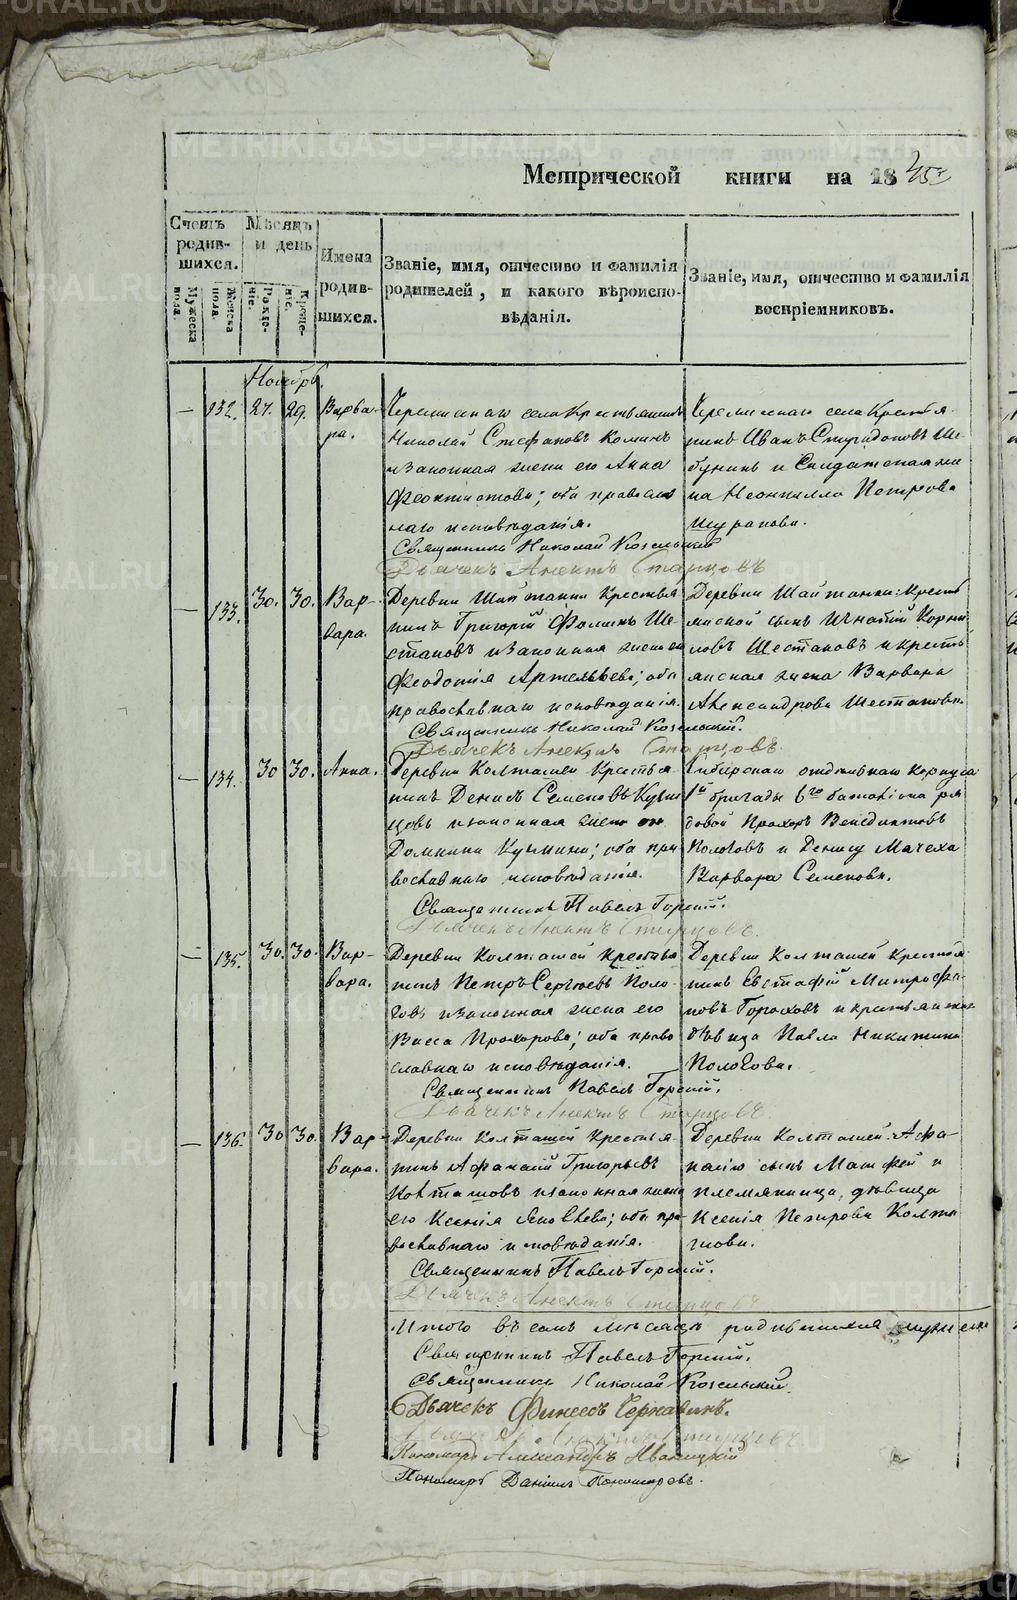 Метрической книги на 1845
Счетъ родив-шихся.
Мужеска пола.
Женска пола.
Мѣсяцъ и день
Рожде-нiе.
Креще-нiе.
Имена родив-шихся.
Званiе, имя, отчество и фамилiя родителей, и какого вѣроиспо-вѣданiя.
Званiе, имя, отчество и фамилiя воспрiемниковъ.
Ноябрь.
— 132. 27. 29. Варва-
ра.
села Крестьянинъ
Николай Стефановъ Коминъ
и законная жена его Анна
Феоктистова; оба православ
наго исповѣданiя.
Священникъ Николай Козельскiй
Дьячекъ Старцовъ
села Крестья
нинъ Иванъ Спиридоновъ Ше
бунинъ и Солдатская же
на Неонилла Петрова
— 133. 30. 30. Вар-
вара.
Деревни Шайтанки Крестья
нинъ Григорiй Фоминъ Ше
стаковъ и законная жена его
Феодосiя Артемьева; оба
православнаго исповѣданiя.
Священникъ Николай Козельскiй.
Дьячекъ Старцовъ.
Деревни Шайтанки Кресть
янской сынъ Игнатiй Корни
ловъ Шестаковъ и кресть
янская жена Варвара
Александрова Шестакова.
— 134. 30 30. Анна.
Деревни Колташей Крестья
нинъ Денисъ Семеновъ Кузне
цовъ и законная жена его
Домника Кузмина; оба пра
вославнаго исповѣданiя.
Священникъ Павелъ Горскiй.
Дьячекъ Старцовъ.
Сибирскаго отдѣльнаго корпуса
1й бригады 6го баталiона ря
довой Прохоръ Венедиктовъ
Полоховъ и Денису Мачеха
Варвара Семенова.
— 135. 30. 30. Вар-
вара.
Деревни Колташей Крестья
нинъ Петръ Сергѣевъ Поло
ховъ и законная жена его
Васса Прохорова; оба право
славнаго исповѣданiя.
Священникъ Павелъ Горскiй.
Дьячекъ Старцовъ.
Деревни Колташей Крестья
нинъ Евстафiй Митрофа
новъ Гороховъ и крестьянская
дѣвица Павла Никитина
Полохова.
— 136. 30 30. Вар-
вара.
Деревни Колташей Крестья
нинъ Афанасiй Григорьевъ
Колташовъ и законная жена
его Ксенiя Яковлева; оба пра
вославнаго исповѣданiя.
Священникъ Павелъ Горскiй.
Дьячекъ Старцовъ
Деревни Колташей Афа
насiю сынъ Матфей и
племянница, дѣвица
Ксенiя Петрова Колта
шова.
Итого въ семъ мѣсяцѣ родившихся
Священникъ Павелъ Горскiй.
Священникъ Николай Козельскiй.
Дьячекъ Финеесъ Чернавинъ.
Старцовъ
Пономарь Александръ Иваницкiй
Пономарь Данiилъ Пономаревъ.
METRIKI.GASO-URAL.RU